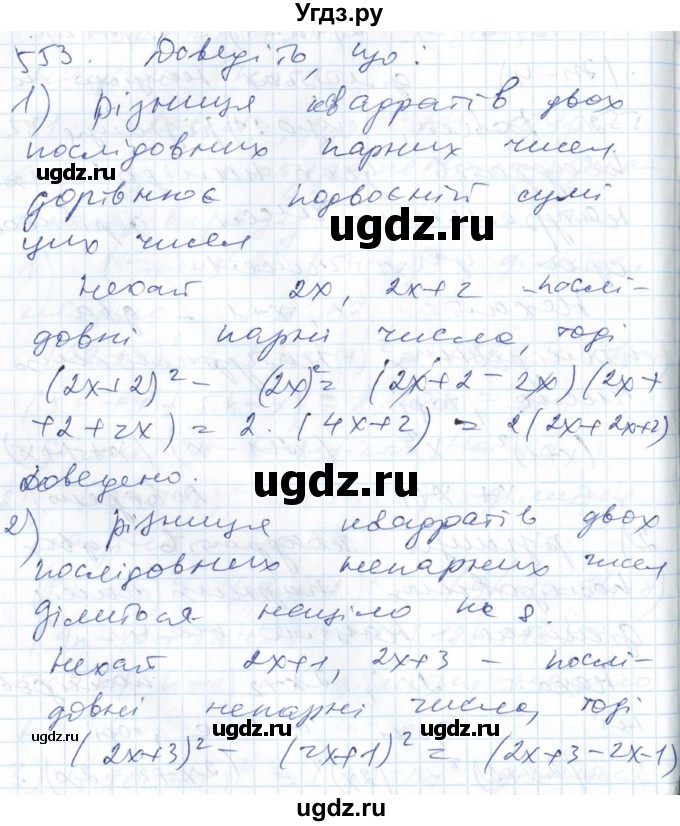 Угдз.ру
553. Доведіть, що:
1) різниця квадратів двох
послідовних парних чисел
дорівнює подвоєній сумі
цих чисел
Нехай 2x, 2x+2 - послі-
довні парні числа, тоді
(2x+2)² - (2x)² = (2x+2-2x)(2x+
+2+2x) = 2·(4x+2) = 2(2x+2x+2)
Доведено.
2) різниця квадратів двох
послідовних непарних чисел
ділиться націло на 8.
Нехай 2x+1, 2x+3 - послі-
довні непарні числа, тоді
(2x+3)² - (2x+1)² = (2x+3-2x-1)
ugdz.ru
ugdz.ru
ugdz.ru
ugdz.ru
ugdz.ru
ugdz.ru
ugdz.ru
ugdz.ru
ugdz.ru
ugdz.ru